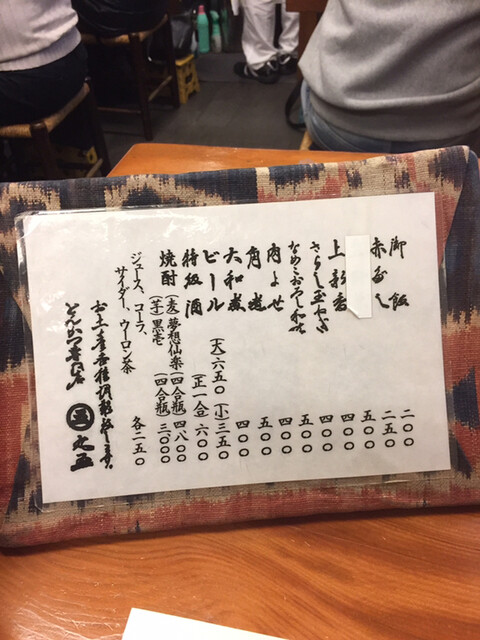 御飯 二〇〇
赤だし 二五〇
五〇〇
上新香 四〇〇
さらし玉ねぎ 四〇〇
なめこおろし和せ 五〇〇
肉よせ 四〇〇
角煮 五〇〇
大和煮 四〇〇
ビール (大)六五〇 (小)三五〇
特級酒 (正一合)六〇〇
焼酎 (麦)夢想仙楽(四合瓶)四八〇〇
(芋)黒壱(四合瓶)三〇〇〇
ジュース、コーラ、
サイダー、ウーロン茶 各二五〇
お土産各種調製致します。
とんかつ専門店 丸五